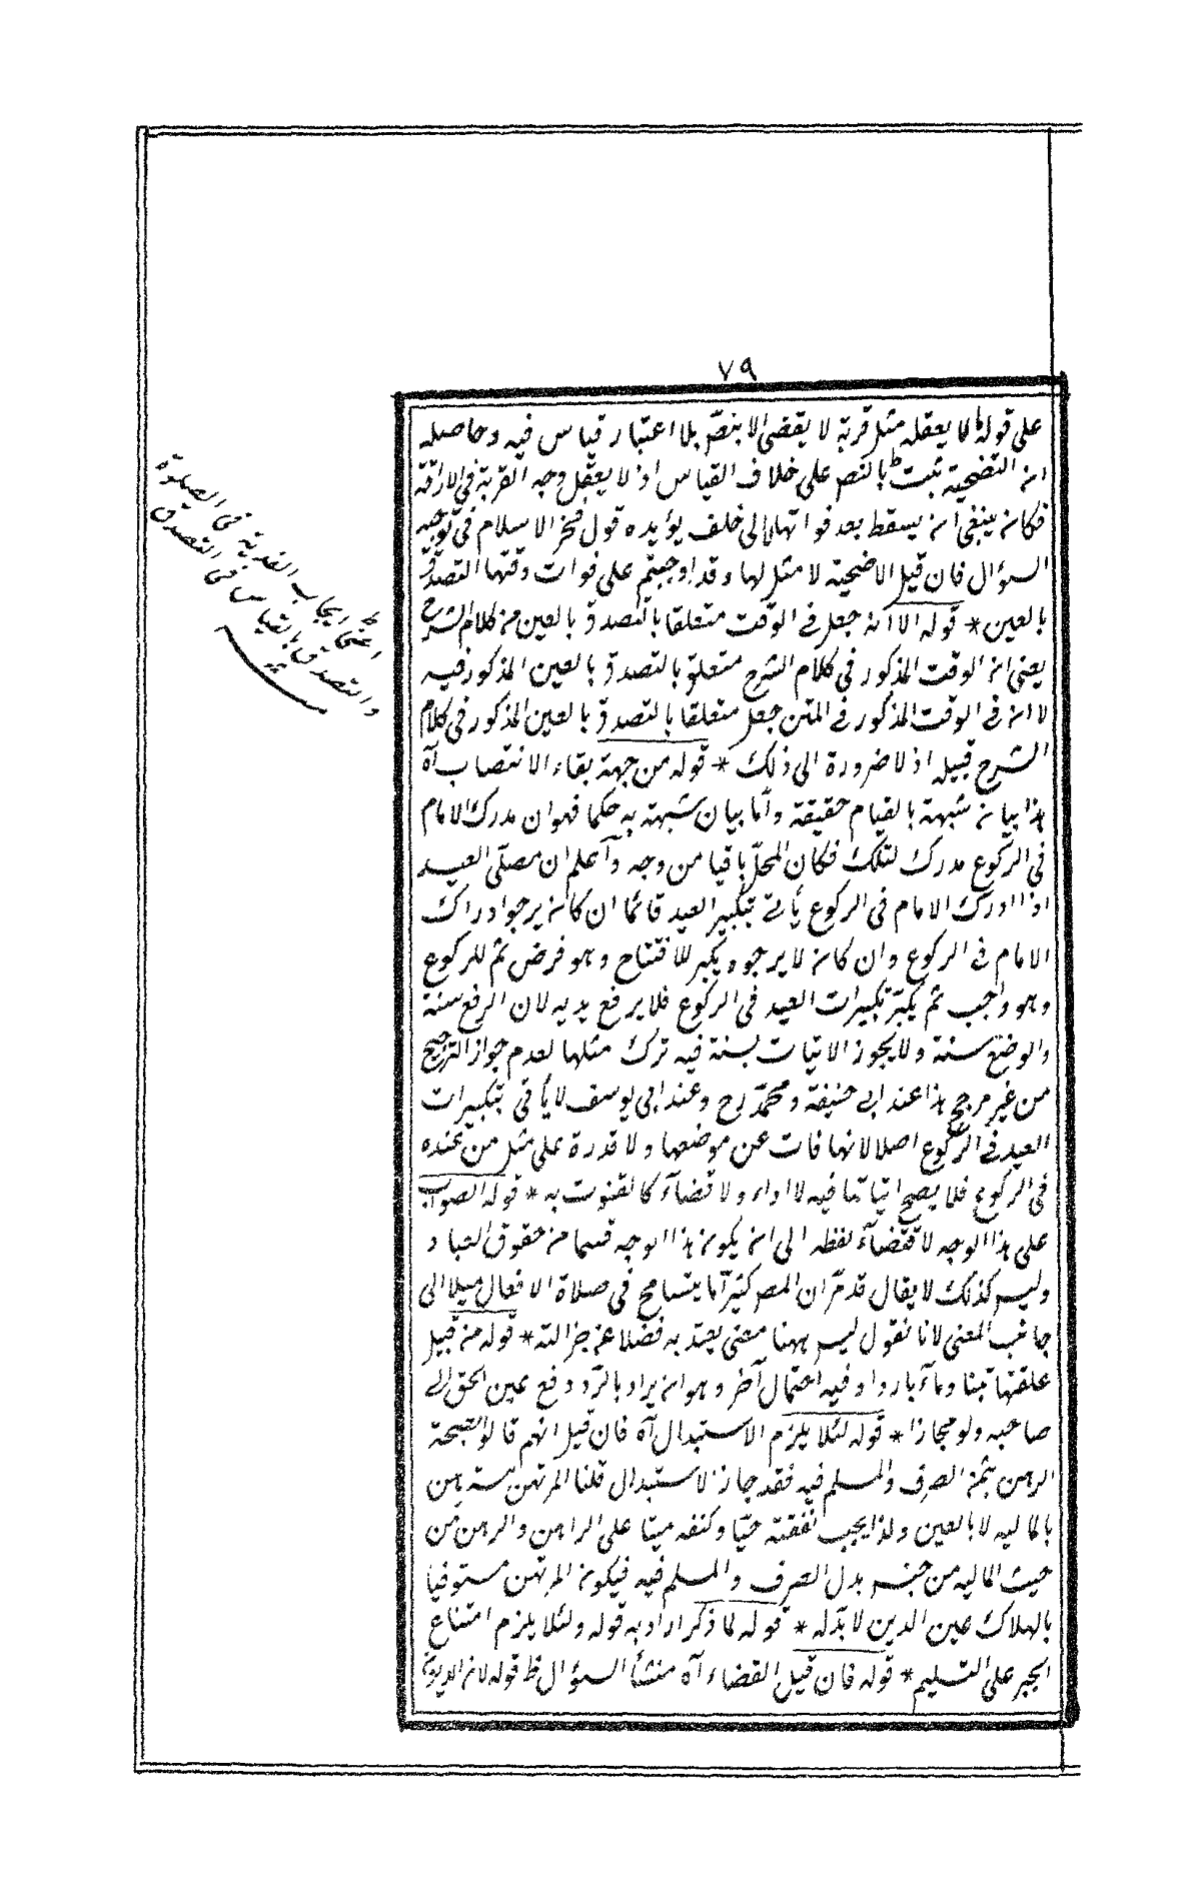 ٧٩
على قوله ما لا يعقله مثل قربة لا يقضى الا بنص بلا اعتبار قياس فيه وحاصله
ان التضحية ثبت بالنص على خلاف القياس اذ لا يعقل وجه القربة فى الاراقة
فكان ينبغى ان يسقط بعد فواتها لا الى خلف يؤيده قول فخر الاسلام فى توجيه
السؤال فان قيل الاضحية لا مثل لها وقد اوجبتم على فوات وقتها التصدق
بالعين * قوله الا انه جعل فى الوقت متعلقا بالتصدق بالعين من كلام الشرح
يعنى ان الوقت المذكور فى كلام الشرح متعلق بالتصدق بالعين المذكور فيه
لا ان فى الوقت المذكور فى المتن جعل متعلقا بالتصدق بالعين المذكور فى كلام
الشرح قبيله اذ لا ضرورة الى ذلك * قوله من جهة بقاء الانتصاب آه
هذا بيان شبهة بالقيام حقيقة وأما بيان شبهة به حكما فهو ان مدرك الامام
فى الركوع مدرك لتلك فكان المحل باقيا من وجه وآعلم ان مصلى العيد
اذا ادرك الامام فى الركوع يأتى بتكبير العيد قائما ان كان يرجو ادراك
الامام فى الركوع وان كان لا يرجوه يكبر للافتتاح وهو فرض ثم للركوع
وهو واجب ثم يكبر تكبيرات العيد فى الركوع فلا يرفع يديه لان الرفع سنة
والوضع سنة ولا يجوز الاتيات بسنة فيه ترك مثلها لعدم جواز الترجيح
من غير مرجح هذا عند ابى حنيفة ومحمد رح وعند ابى يوسف لا يأتى بتكبيرات
العيد فى الركوع اصلا لانها فات عن موضعها ولا قدرة على مثل من عنده
فى الركوع فلا يصح اتيانها فيه لا اداء ولا قضآء كالقنوت به * قوله الصواب
على هذا الوجه لاقتضآء لفظه الى ان يكون هذا الوجه قسما من حقوق العباد
وليس كذلك لا يقال قد مر ان المص كثيرآما يتسامح فى صلاة الافعال ميلا الى
جانب المعنى لانا نقول ليس ههنا معنى يعتد به فضلا عن جزالته * قوله من قبيل
علفتها تبنا وماء باردا وفيه احتمال آخر وهو ان يراد بالرد دفع عين الحق الى
صاحبه ولو مجازا * قوله لئلا يلزم الاستبدال آه فان قيل انهم قالوا بصحة
الرهن بثمن الصرف والمسلم فيه فقد جاز الاستبدال قلنا المرتهن يسترهن
بالماليه لا بالعين ولذا يجب نفقته حيا وكفنه ميتا على الراهن والرهن من
حيث الماليه من جنس بدل الصرف والمسلم فيه فيكون المرتهن مستوفيا
بالهلاك عين الدين لا بدله * قوله لما ذكر اراد به قوله ولئلا يلزم امتناع
الجبر على التسليم * قوله فان قيل القضاء آه منشأ السؤال ظ قوله لان الديون
ايجاب الفدية فى الصلوة
والتصدق بالقياس فى التصدق